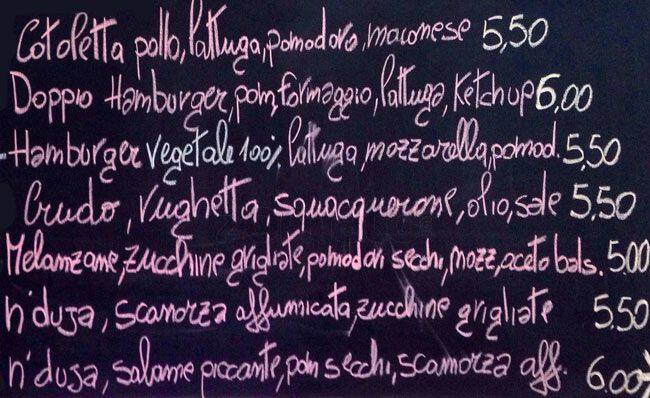 Cotoletta pollo, lattuga, pomodoro, maionese 5,50
Doppio Hamburger, pom, formaggio, lattuga, Ketchup 6,00
-Hamburger vegetale 100% lattuga, mozzarella, pomod. 5,50
Crudo, rughetta, squacquerone, olio, sale 5,50
Melanzane, zucchine grigliate, pomodori secchi, mozz, aceto bals. 5,00
n'duja, scamorza affumicata, zucchine grigliate 5,50
n'duja, salame piccante, pom secchi, scamorza aff. 6,00